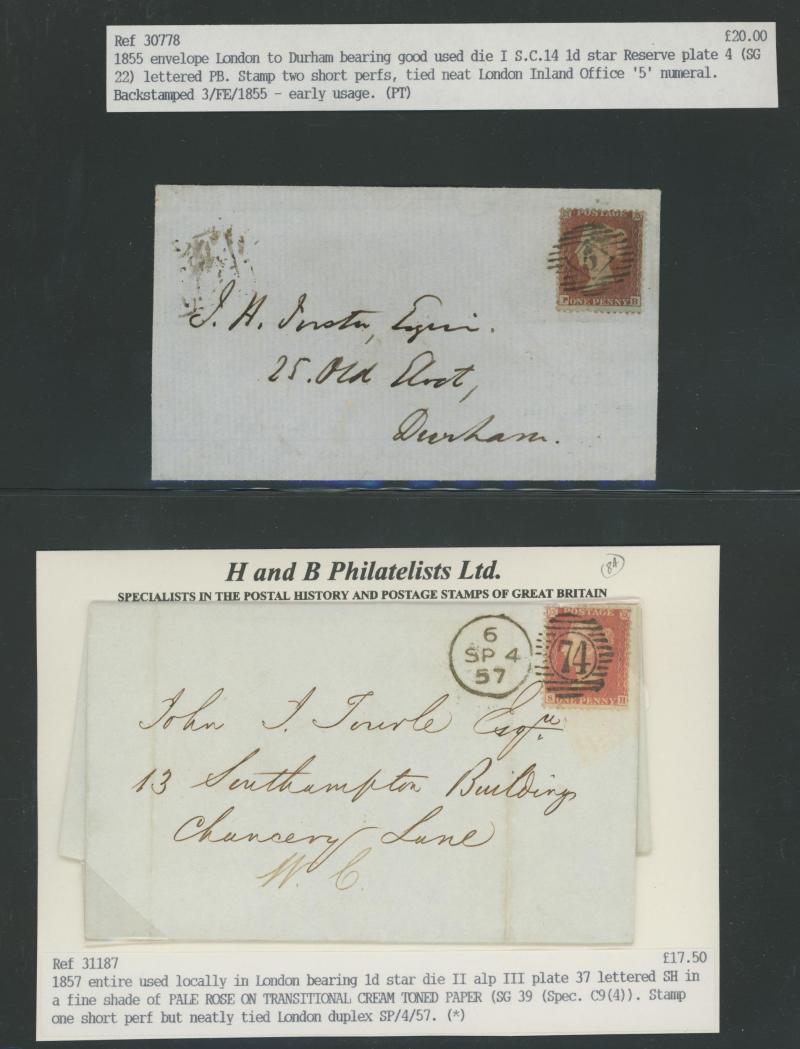 Ref 30778 £20.00
1855 envelope London to Durham bearing good used die I S.C.14 1d star Reserve plate 4 (SG
22) lettered PB. Stamp two short perfs, tied neat London Inland Office '5' numeral.
Backstamped 3/FE/1855 - early usage. (PT)
POSTAGE
5
P ONE PENNY B
J. H. Forster, Esquire.
25. Old Elvet,
Durham.
H and B Philatelists Ltd.
84
SPECIALISTS IN THE POSTAL HISTORY AND POSTAGE STAMPS OF GREAT BRITAIN
6
SP 4
57
POSTAGE
74
S ONE PENNY H
John J. Towle Esqre
13 Southampton Buildings
Chancery Lane
W. C.
Ref 31187 £17.50
1857 entire used locally in London bearing 1d star die II alp III plate 37 lettered SH in
a fine shade of PALE ROSE ON TRANSITIONAL CREAM TONED PAPER (SG 39 (Spec. C9(4)). Stamp
one short perf but neatly tied London duplex SP/4/57. (*)